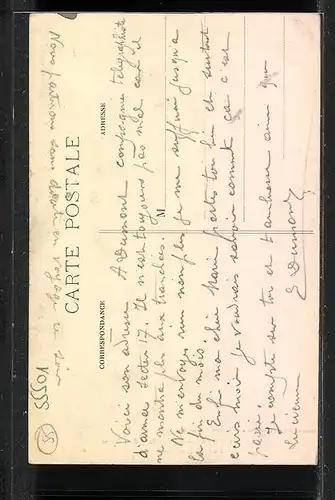 CARTE POSTALE
CORRESPONDANCE
ADRESSE
M
Voici son adresse A Dumont compagnie télégraphiste
d'armée secteur 17. Il n'est toujours pas mal car il
ne montera plus aux tranchées.
Ne m'envoyez rien non plus je me suffirai jusqu'à
la fin du mois.
Enfin ma chère Marie portes toi bien et surtout
je voudrais savoir comment ça c'est
Je compte sur toi et t'embrasse ainsi que
Lucienne
E Dumont
Nous partirons sans
55501